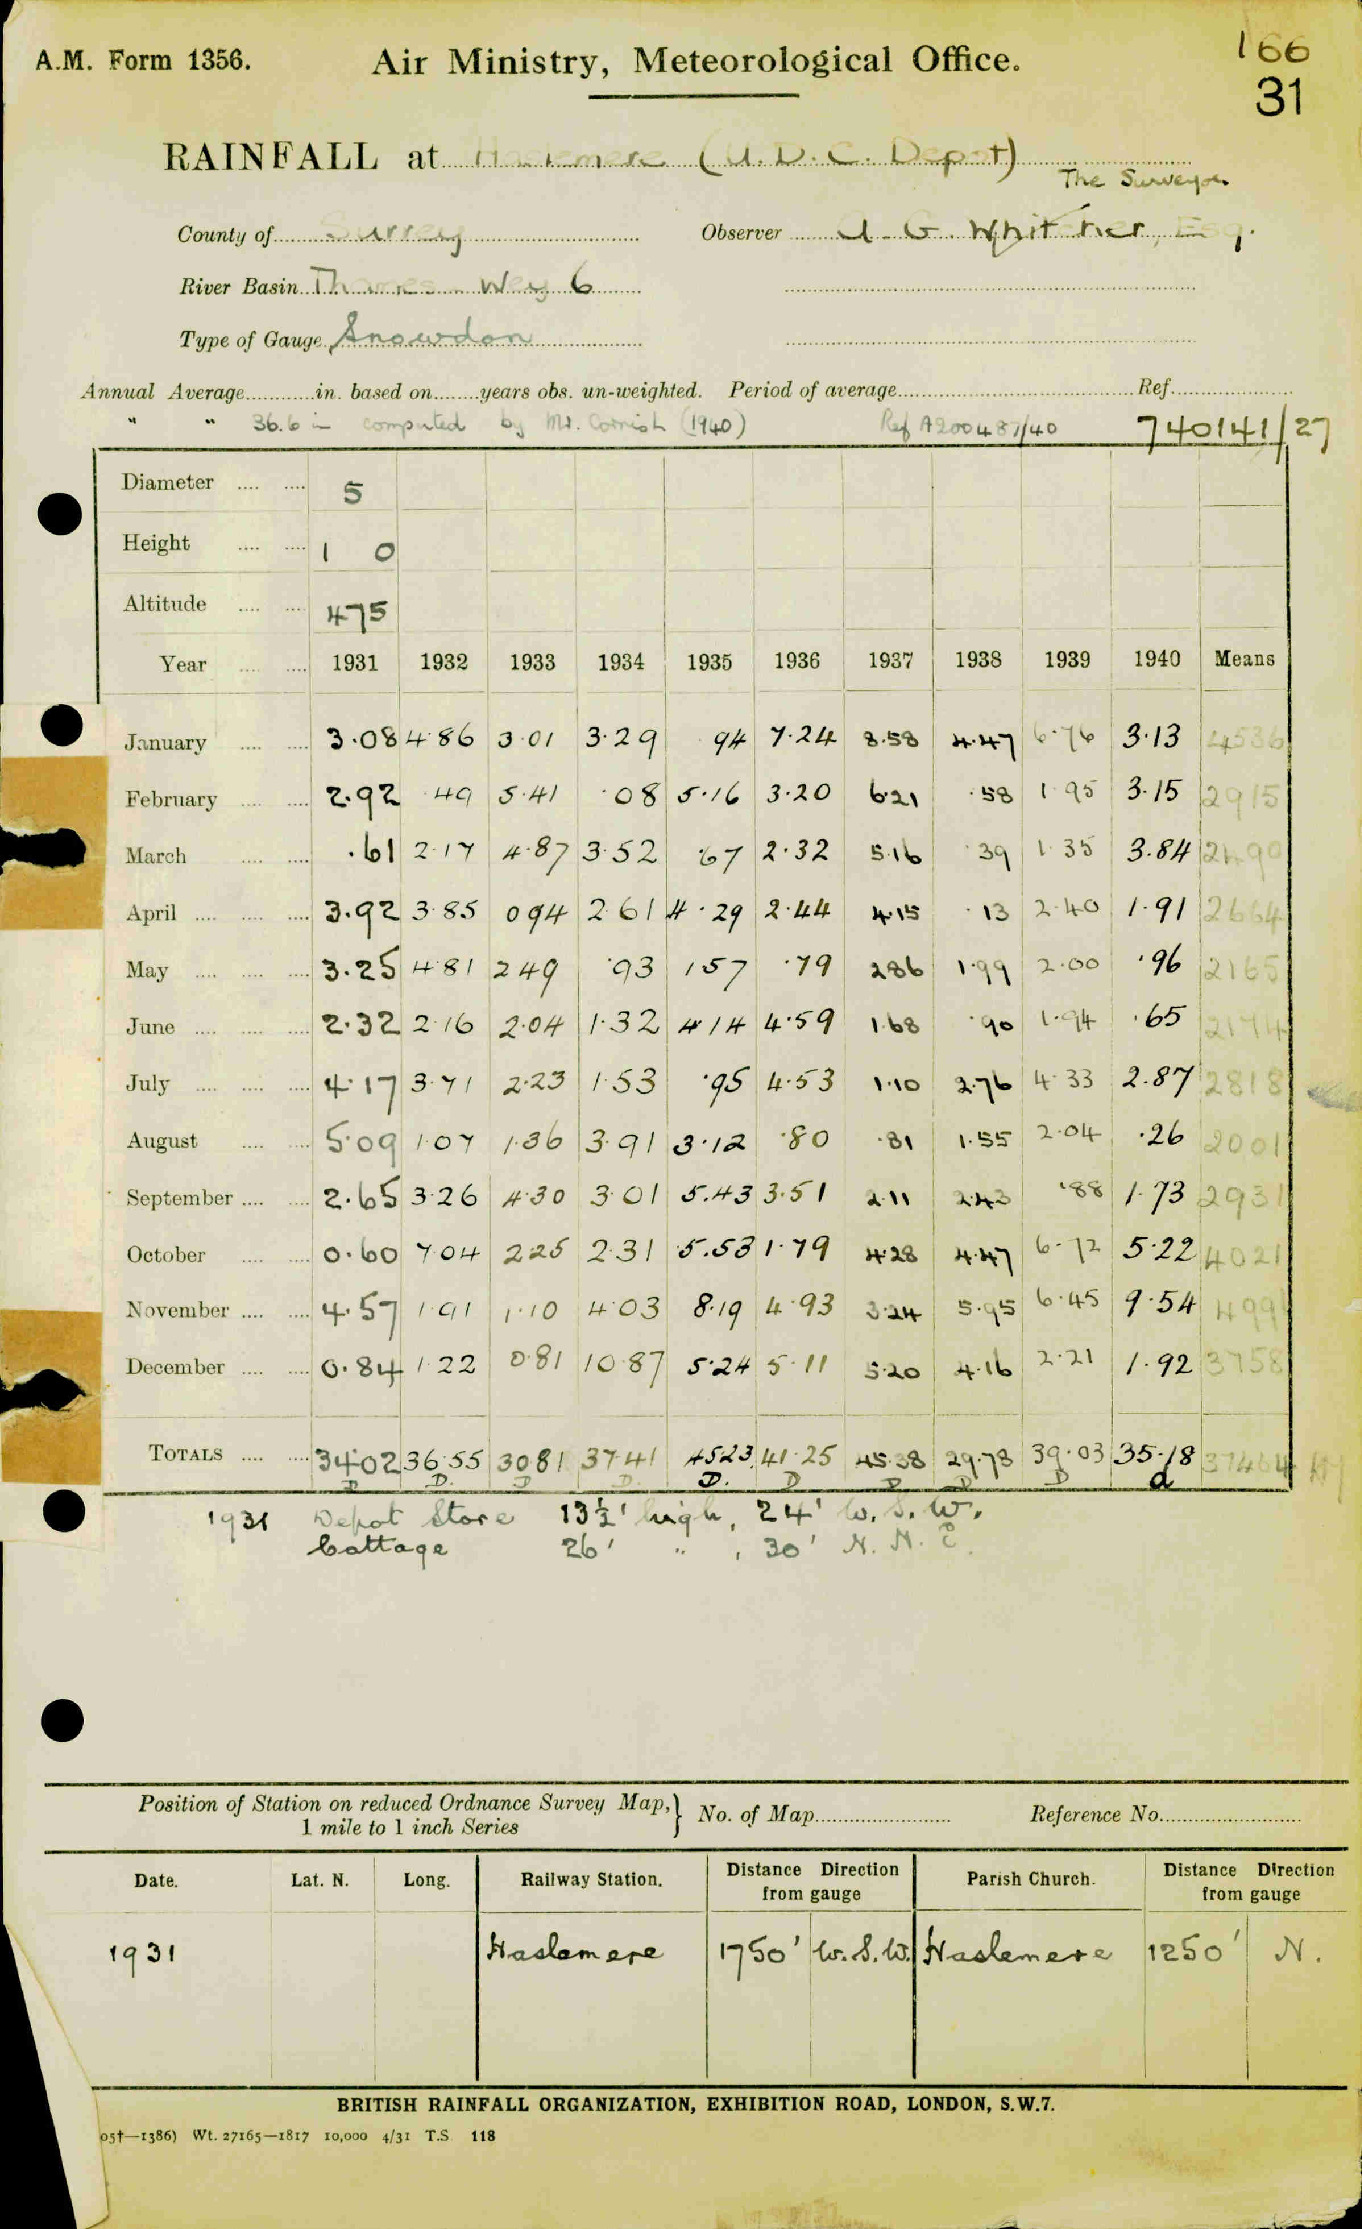 A.M. Form 1356. Air Ministry, Meteorological Office. 166
31
RAINFALL at Haslemere (U.D.C. Depot)
The Surveyor
County of Surrey Observer A. G. Whitcher, Esq.
River Basin Thames Wey 6
Type of Gauge Snowdon
Annual Average in. based on years obs. un-weighted. Period of average Ref.
" " 36.6 in computed by Mr. Cornish (1940) Ref A200487/40 740141/27
Diameter 5
Height 1 0
Altitude 475
Year 1931 1932 1933 1934 1935 1936 1937 1938 1939 1940 Means
January 3.08 4.86 3.01 3.29 .94 7.24 8.58 4.47 6.76 3.13 4536
February 2.92 .49 5.41 .08 5.16 3.20 6.21 .58 1.95 3.15 2915
March .61 2.17 4.87 3.52 .67 2.32 5.16 .39 1.35 3.84 2490
April 3.92 3.85 0 94 2.61 4.29 2.44 4.15 .13 2.40 1.91 2664
May 3.25 4.81 2 49 .93 1 57 .79 2.86 1.99 2.00 .96 2165
June 2.32 2.16 2.04 1.32 4.14 4.59 1.68 .90 1.94 .65 2174
July 4.17 3.71 2.23 1.53 .95 4.53 1.10 2.76 4.33 2.87 2818
August 5.09 1.07 1.36 3.91 3.12 .80 .81 1.55 2.04 .26 2001
September 2.65 3.26 4.30 3.01 5.43 3.51 2.11 2.43 .88 1.73 2931
October 0.60 7.04 2.25 2.31 5.53 1.79 4.28 4.47 6.72 5.22 4021
November 4.57 1.91 1.10 4.03 8.19 4.93 3.24 5.95 6.45 9.54 4991
December 0.84 1.22 0.81 10.87 5.24 5.11 5.20 4.16 2.21 1.92 3758
TOTALS 34.02 36.55 30.81 37.41 45.23 41.25 45.38 29.78 39.03 35.18 37464
D D. D D. D. D D D D d
1931 Depot Store 13½' high, 24' W.S.W.
Cottage 26' " , 30' N.N.E.
Position of Station on reduced Ordnance Survey Map, } No. of Map Reference No.
1 mile to 1 inch Series
Date. Lat. N. Long. Railway Station. Distance Direction Parish Church. Distance Direction
from gauge from gauge
1931 Haslemere 1750' W.S.W. Haslemere 1250' N.
BRITISH RAINFALL ORGANIZATION, EXHIBITION ROAD, LONDON, S.W.7.
05†—1386) Wt. 27165—1817 10,000 4/31 T.S. 118